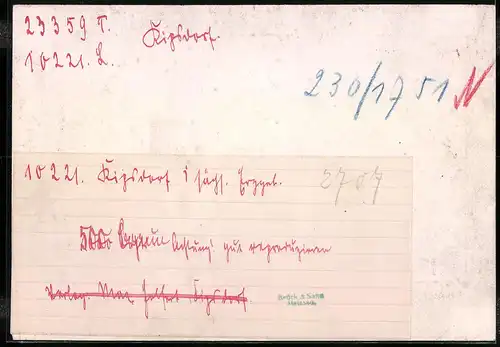 23359 T. Kipsdorf.
10221. L.
230/1751 N
10221. Kipsdorf i sächs. Erzgeb. 2707
500 Achtung! gut reproduzieren
Verlag. Max Kipsdorf.
Brück & Sohn
Meissen